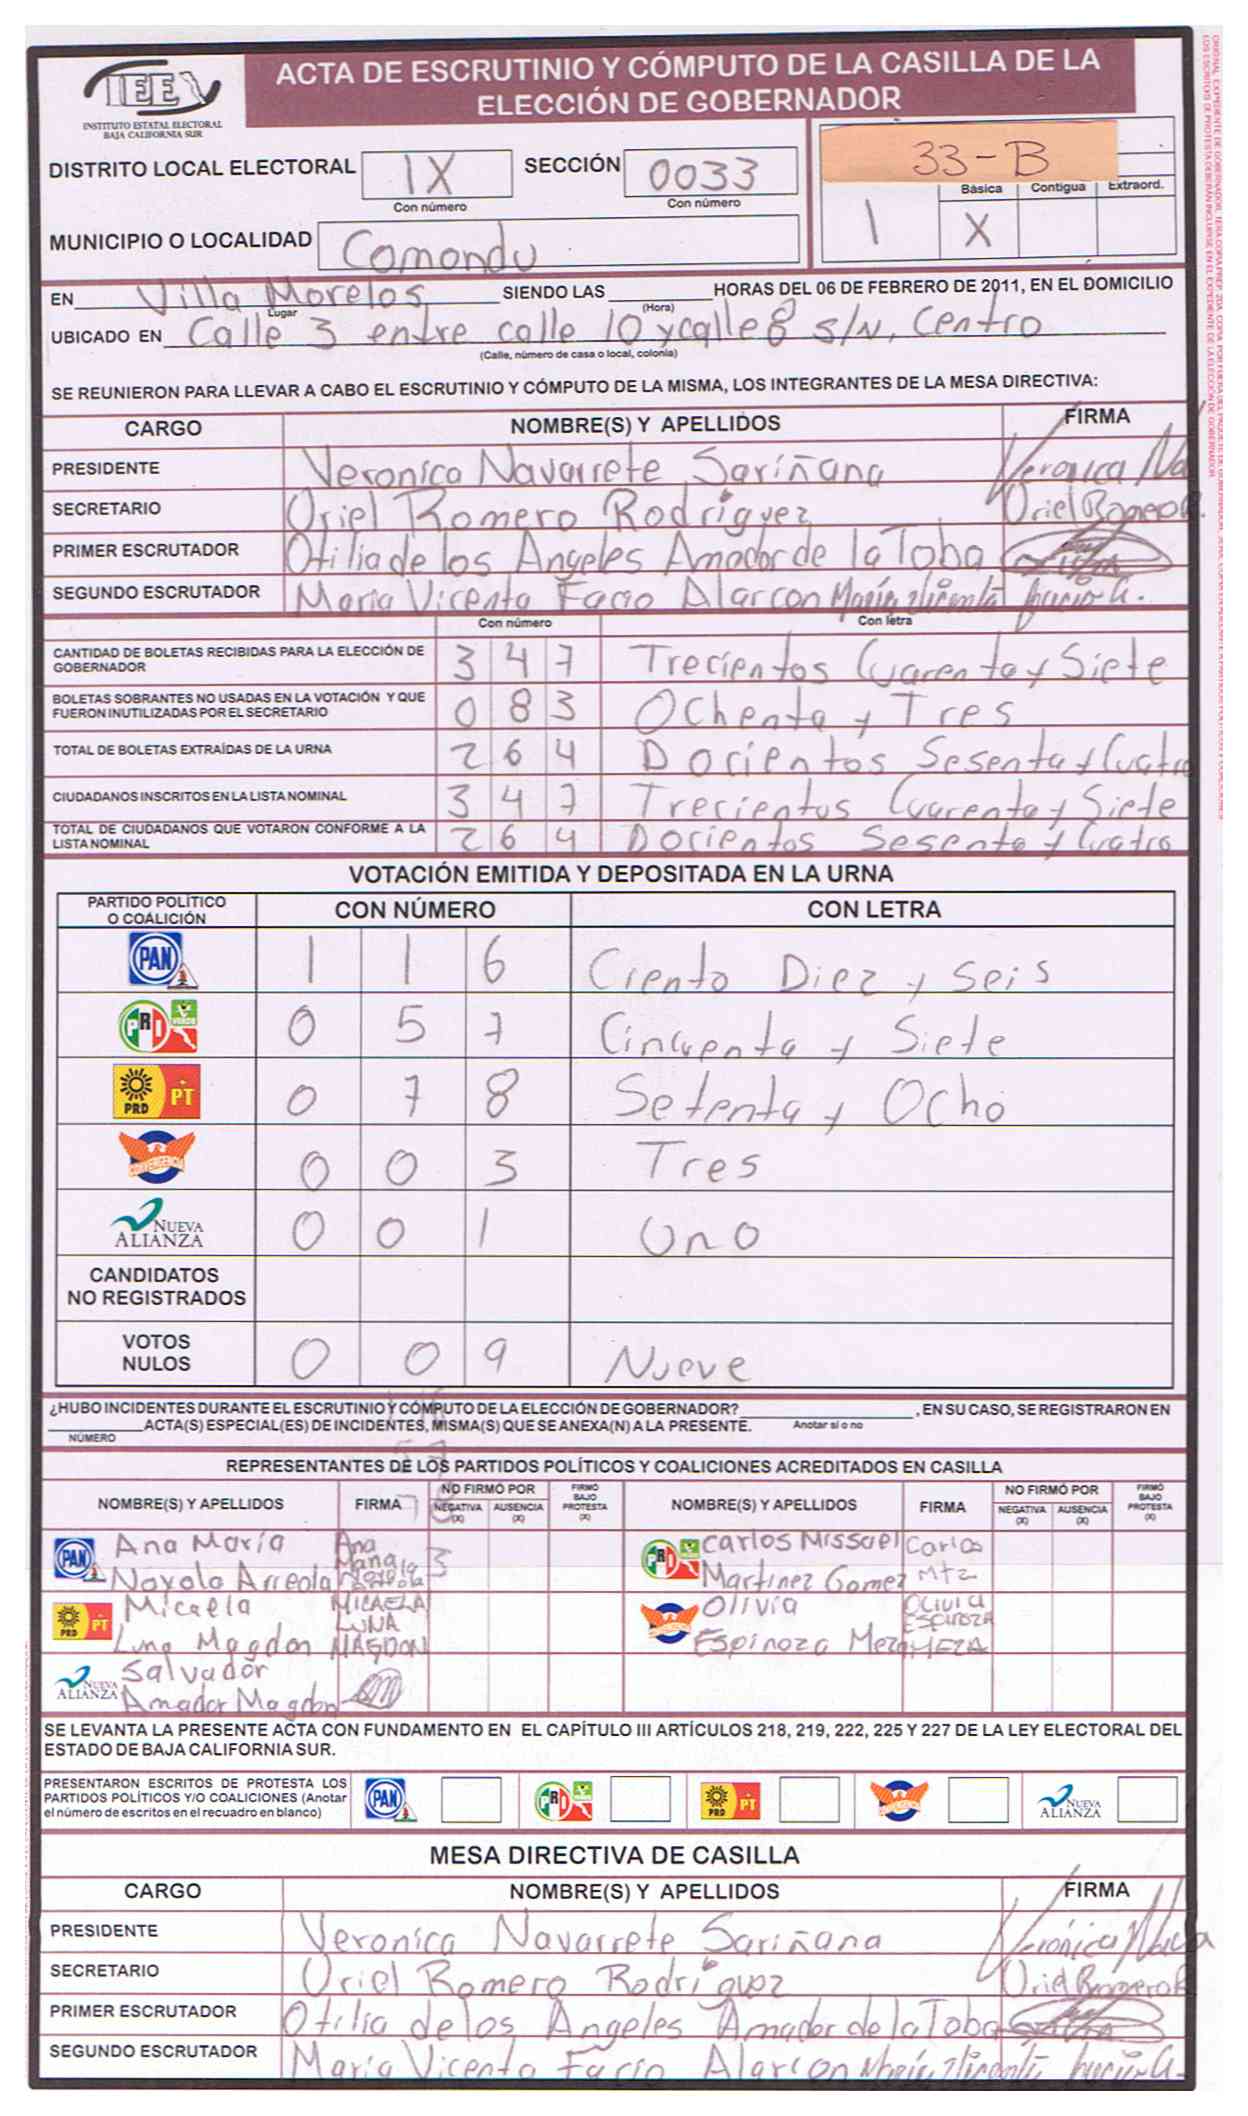 IEE
INSTITUTO ESTATAL ELECTORAL
BAJA CALIFORNIA SUR
ACTA DE ESCRUTINIO Y CÓMPUTO DE LA CASILLA DE LA
ELECCIÓN DE GOBERNADOR
DISTRITO LOCAL ELECTORAL IX SECCIÓN 0033
Con número Con número
33-B
Básica Contigua Extraord.
1 X
MUNICIPIO O LOCALIDAD Comondu
EN Villa Morelos SIENDO LAS HORAS DEL 06 DE FEBRERO DE 2011, EN EL DOMICILIO
Lugar (Hora)
UBICADO EN Calle 3 entre calle 10 y calle 8 s/n, Centro
(Calle, número de casa o local, colonia)
SE REUNIERON PARA LLEVAR A CABO EL ESCRUTINIO Y CÓMPUTO DE LA MISMA, LOS INTEGRANTES DE LA MESA DIRECTIVA:
CARGO NOMBRE(S) Y APELLIDOS FIRMA
PRESIDENTE Veronica Navarrete Sariñana Veronica Na
SECRETARIO Uriel Romero Rodriguez Uriel Romero R.
PRIMER ESCRUTADOR Otilia de los Angeles Amador de la Toba
SEGUNDO ESCRUTADOR Maria Vicenta Facio Alarcon María Vicenta Facio A.
Con número Con letra
CANTIDAD DE BOLETAS RECIBIDAS PARA LA ELECCIÓN DE
GOBERNADOR 3 4 7 Trecientos Cuarenta y Siete
BOLETAS SOBRANTES NO USADAS EN LA VOTACIÓN Y QUE
FUERON INUTILIZADAS POR EL SECRETARIO 0 8 3 Ochenta y Tres
TOTAL DE BOLETAS EXTRAÍDAS DE LA URNA 2 6 4 Docientos Sesenta y Cuatro
CIUDADANOS INSCRITOS EN LA LISTA NOMINAL 3 4 7 Trecientos Cuarenta y Siete
TOTAL DE CIUDADANOS QUE VOTARON CONFORME A LA
LISTA NOMINAL 2 6 4 Docientos Sesenta y Cuatro
VOTACIÓN EMITIDA Y DEPOSITADA EN LA URNA
PARTIDO POLÍTICO
O COALICIÓN CON NÚMERO CON LETRA
PAN 1 1 6 Ciento Diez y Seis
PRI VERDE 0 5 7 Cincuenta y Siete
PRD PT 0 7 8 Setenta y Ocho
CONVERGENCIA 0 0 3 Tres
NUEVA
ALIANZA 0 0 1 Uno
CANDIDATOS
NO REGISTRADOS
VOTOS
NULOS 0 0 9 Nueve
¿HUBO INCIDENTES DURANTE EL ESCRUTINIO Y CÓMPUTO DE LA ELECCIÓN DE GOBERNADOR? , EN SU CASO, SE REGISTRARON EN
ACTA(S) ESPECIAL(ES) DE INCIDENTES, MISMA(S) QUE SE ANEXA(N) A LA PRESENTE. Anotar si o no
NÚMERO
REPRESENTANTES DE LOS PARTIDOS POLÍTICOS Y COALICIONES ACREDITADOS EN CASILLA
NOMBRE(S) Y APELLIDOS FIRMA NO FIRMÓ POR NEGATIVA (X) AUSENCIA (X) FIRMÓ BAJO PROTESTA (X) NOMBRE(S) Y APELLIDOS FIRMA NO FIRMÓ POR NEGATIVA (X) AUSENCIA (X) FIRMÓ BAJO PROTESTA (X)
PAN Ana María Ana María PRI Carlos Missael Carlos
Noyola Arreola Noyola Arreola Martinez Gomez Mtz
PRD PT Micaela MICAELA Olivia OLIVIA
Luna Magdon LUNA MAGDON Espinoza Meza ESPINOZA MEZA
NUEVA ALIANZA Salvador
Amador Magdon
SE LEVANTA LA PRESENTE ACTA CON FUNDAMENTO EN EL CAPÍTULO III ARTÍCULOS 218, 219, 222, 225 Y 227 DE LA LEY ELECTORAL DEL
ESTADO DE BAJA CALIFORNIA SUR.
PRESENTARON ESCRITOS DE PROTESTA LOS
PARTIDOS POLÍTICOS Y/O COALICIONES (Anotar
el número de escritos en el recuadro en blanco) PAN PRI PRD PT NUEVA ALIANZA
MESA DIRECTIVA DE CASILLA
CARGO NOMBRE(S) Y APELLIDOS FIRMA
PRESIDENTE Veronica Navarrete Sariñana Verónica Nava
SECRETARIO Uriel Romero Rodriguez Uriel Romero R
PRIMER ESCRUTADOR Otilia de los Angeles Amador de la Toba
SEGUNDO ESCRUTADOR María Vicenta Facio Alarcon María Vicenta Facio A.